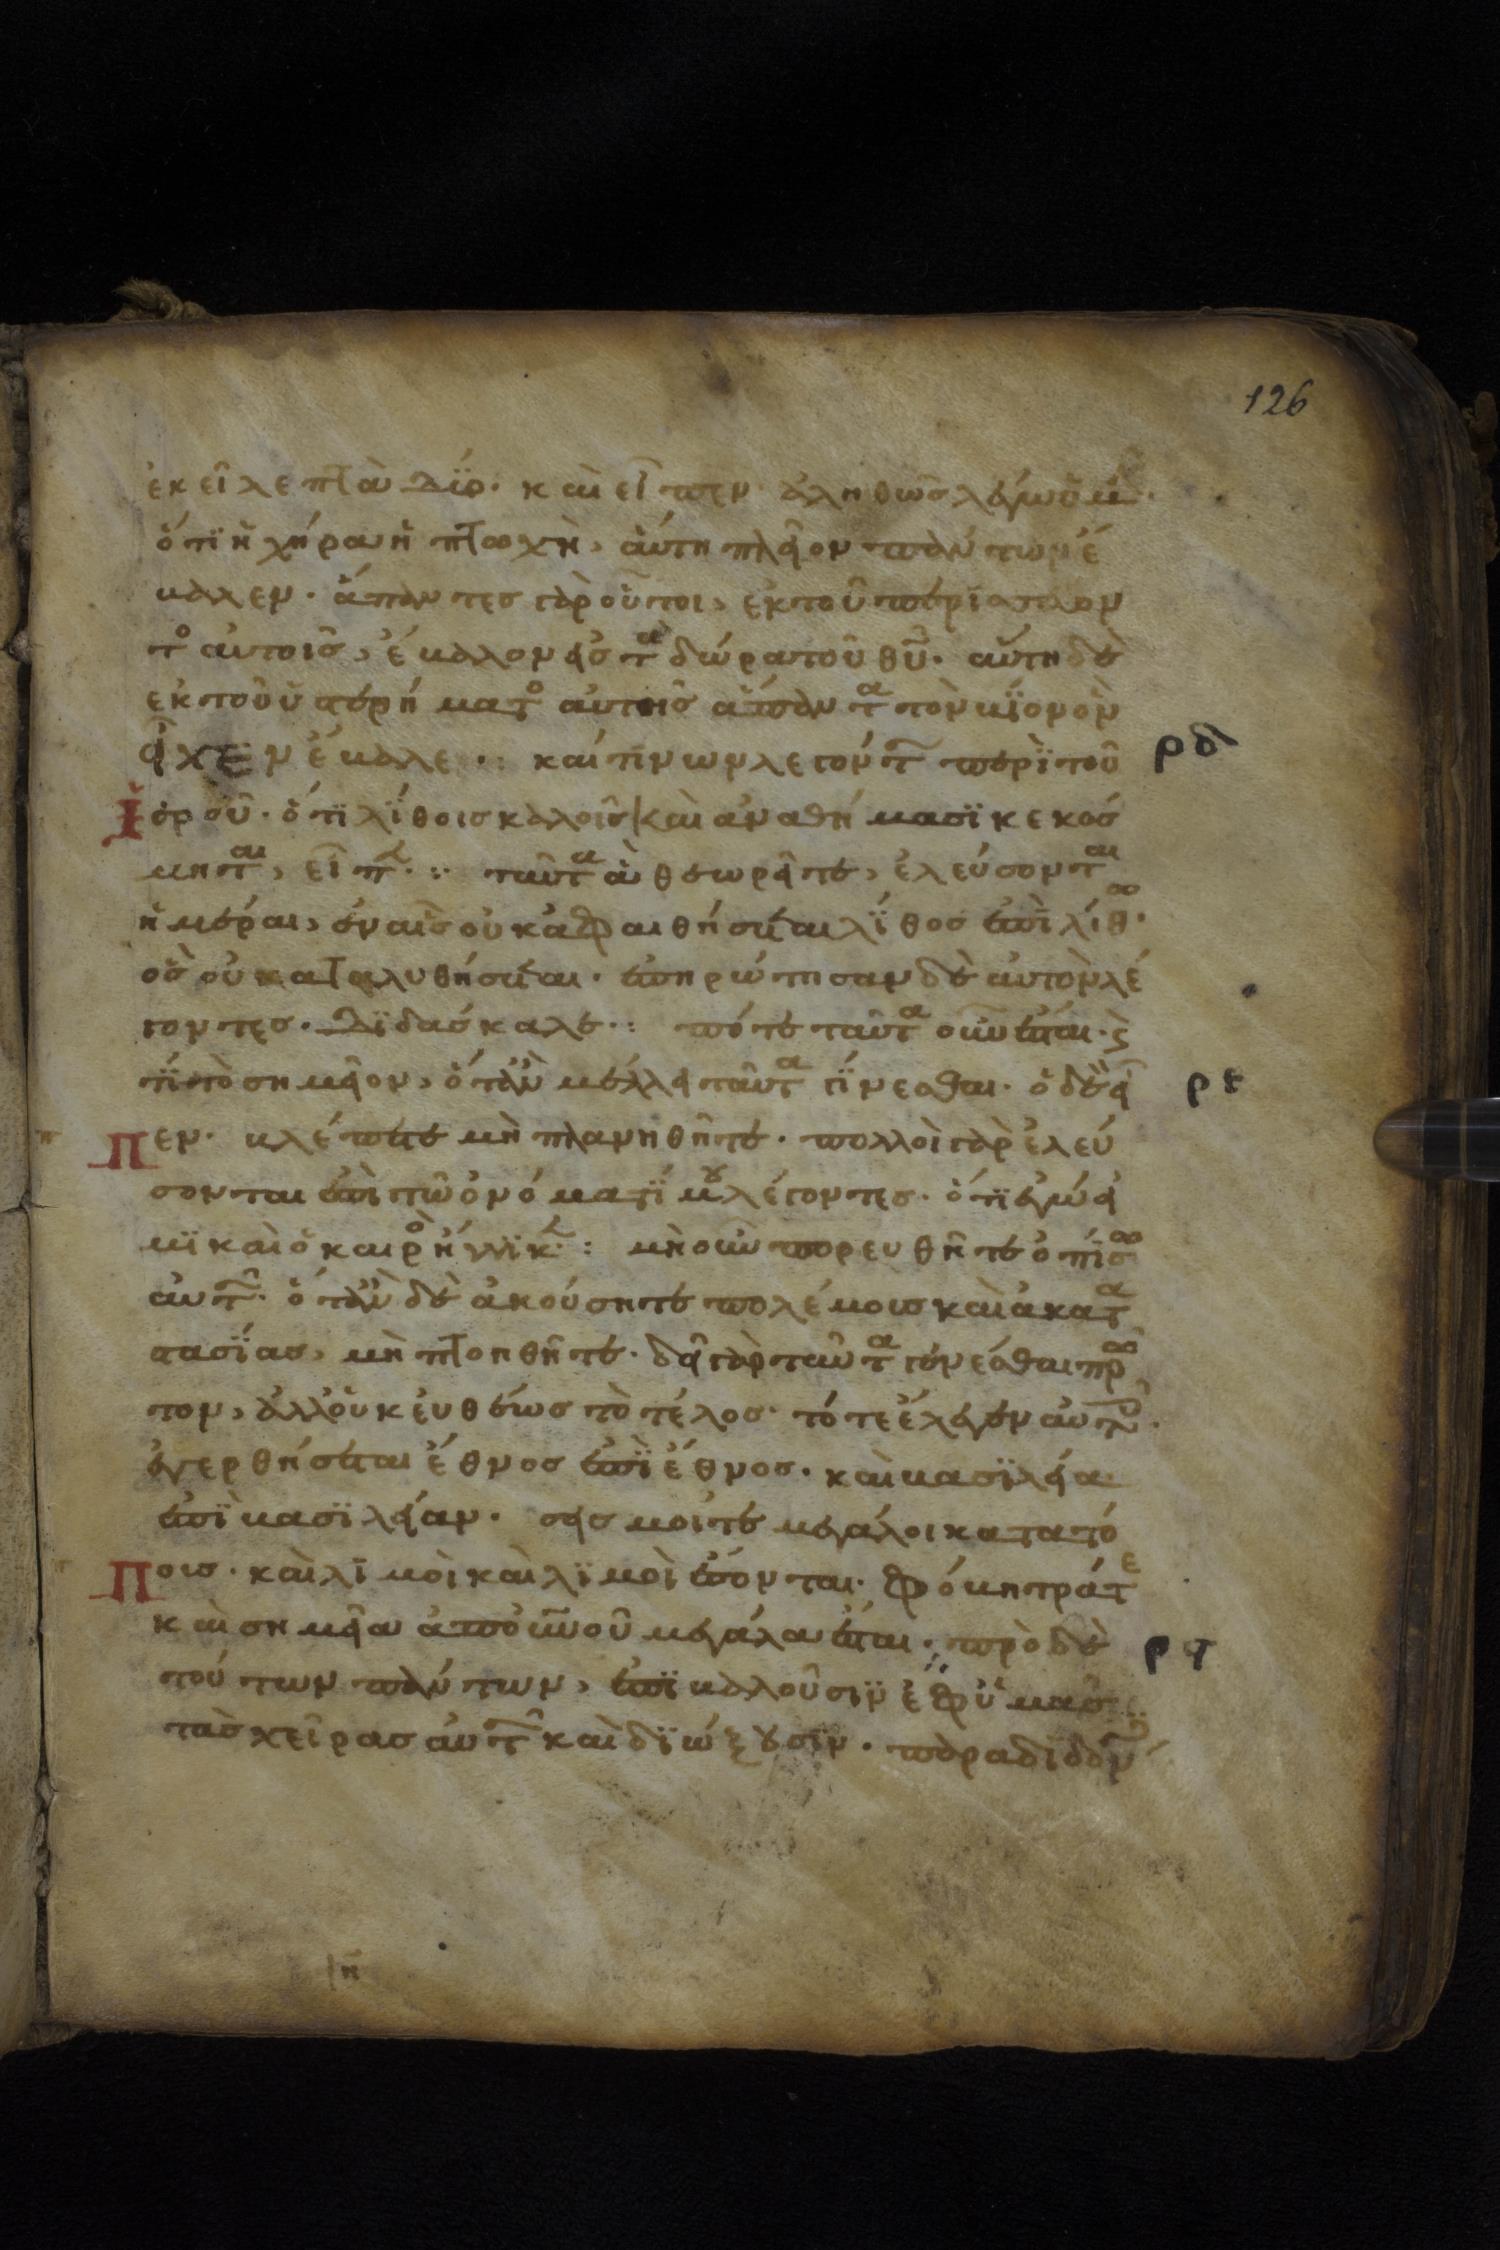 126
ἐκεῖ λεπτὰ δύο· καὶ εἶπεν· ἀληθῶς λέγω ὑμ
ὅτι ἡ χήρα ἡ πτωχὴ, αὕτη πλεῖον πάντων ἔ
βαλεν· ἅπαντες γὰρ οὗτοι, ἐκ τοῦ περισσεύον
το αὐτοῖς, ἔβαλον εἰς τὰ δῶρα τοῦ θυ· αὕτη δὲ
ἐκ τοῦ ὑστερήματο αὐτῆς ἅπαντα τὸν βίον ὃν
εἶχεν ἔβαλε·: καί τινων λεγόντ περὶ τοῦ
ρδ
ἱεροῦ· ὅτι λίθοις καλοῖς καὶ ἀναθήμασι κεκόσ
μηται, εἶπ·: ταῦτα ἃ θεωρεῖτε, ἐλεύσονται
ἡμέραι, ἐν αἷς οὐκ ἀφαιθήσεται λίθος ἐπὶ λίθω·
ὃς οὐ καταλυθήσεται· ἐπηρώτησαν δὲ αὐτὸν λέ
γοντες· διδάσκαλε·: πότε ταῦτα οὖν ἔσται· ϛ
τί τὸ σημεῖον, ὅταν μέλλει ταῦτα γίνεσθαι· ὁ δὲ εἶ
ρε
πεν· βλέπετε μὴ πλανηθῆτε· πολλοὶ γὰρ ἐλεύ
σονται ἐπὶ τῶ ὀνόματί μου λέγοντες· ὅτι ἐγώ εἰ
μι καὶ ὁ καιρὸ ἤγγικ·: μὴ οὖν πορευθῆτε ὀπίσω
αὐτ· ὅταν δὲ ἀκούσητε πολέμοις καὶ ἀκατα
στασίας, μὴ πτοηθῆτε· δεῖ γὰρ ταῦτα γενέσθαι πρῶ
τον, ἀλλ' οὐκ εὐθέως τὸ τέλος· τότε ἔλεγεν αὐτοῖ·
ἐγερθήσεται ἔθνος ἐπὶ ἔθνος· καὶ βασιλεία
ἐπὶ βασιλείαν· σεισμοί τε μεγάλοι κατὰ τό
ποις· καὶ λιμοὶ καὶ λιμοὶ ἔσονται· φόβητρά τε
καὶ σημεῖα ἀπ' οὐνοῦ μεγάλα ἔσται· πρὸ δὲ
ρϛ
τούτων πάντων, ἐπιβαλοῦσιν ἐφ' ὑμᾶς
τὰς χεῖρας αὐτ καὶ διώξουσιν· παραδιδόν